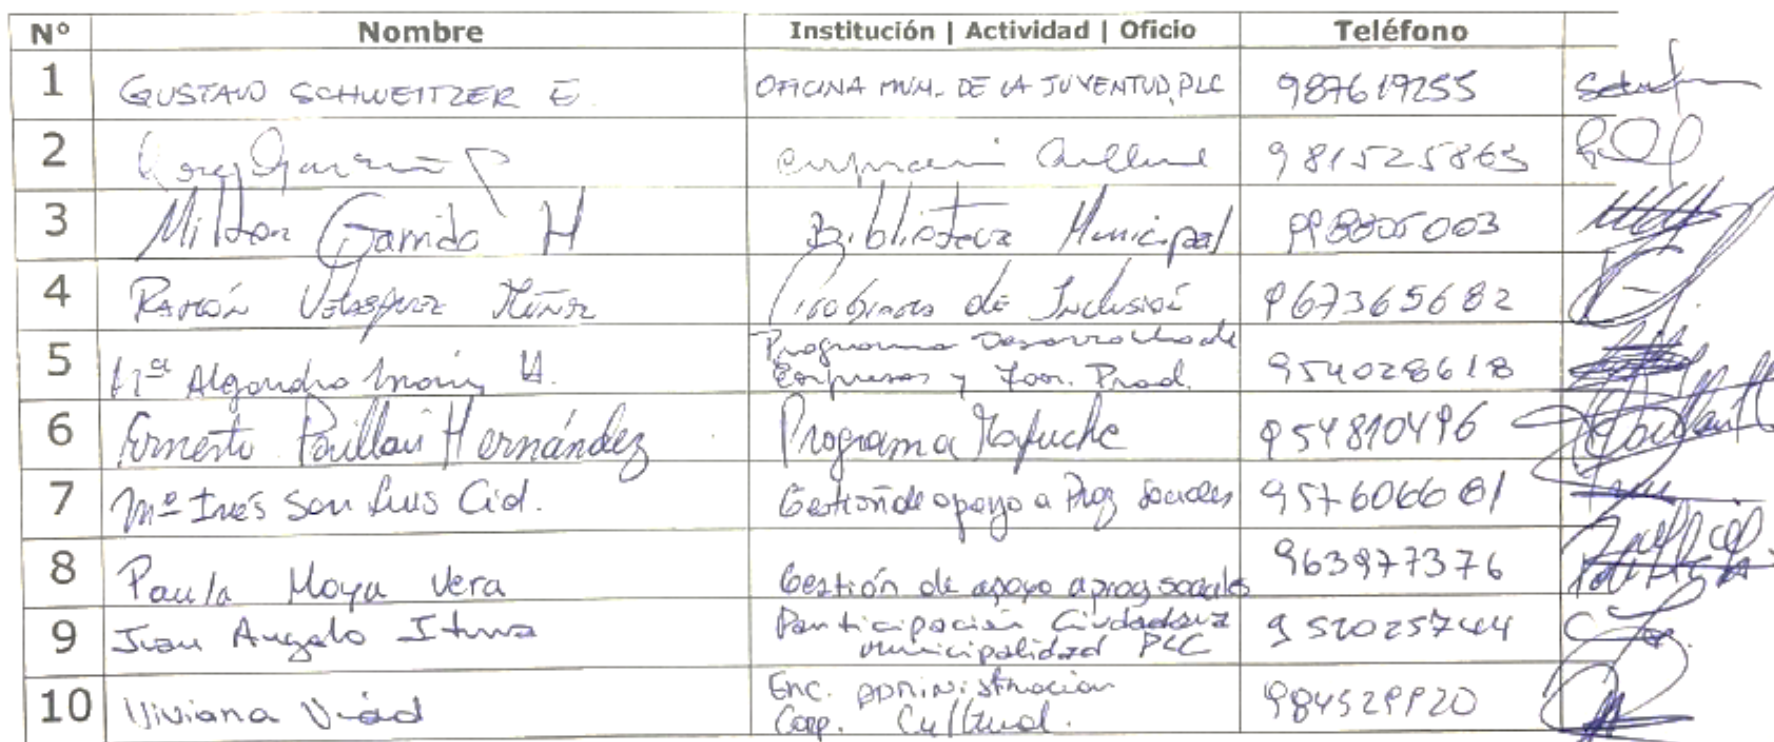 Nº Nombre Institución | Actividad | Oficio Teléfono
1 GUSTAVO SCHWEITZER E. OFICINA MUN. DE LA JUVENTUD, PLC 987619255
2 981525863
3 Milton Garrido H Biblioteca Municipal 998805003
4 RAMÓN de Inclusión 967365682
5 Mª Programa Desarrollo de
Empresas y Fom. Prod. 954028618
6 Ernesto Paillan Hernández Programa Mapuche 954810496
7 Mª Inés San Luis Cid. Gestión de apoyo a Prog Sociales 957606681
8 Paula Moya Vera Gestión de apoyo a prog sociales 963977376
9 Juan Angelo Participación Ciudadana
municipalidad PLC 9 52025744
10 Viviana Enc. Administracion
Corp. Cultural. 984529920